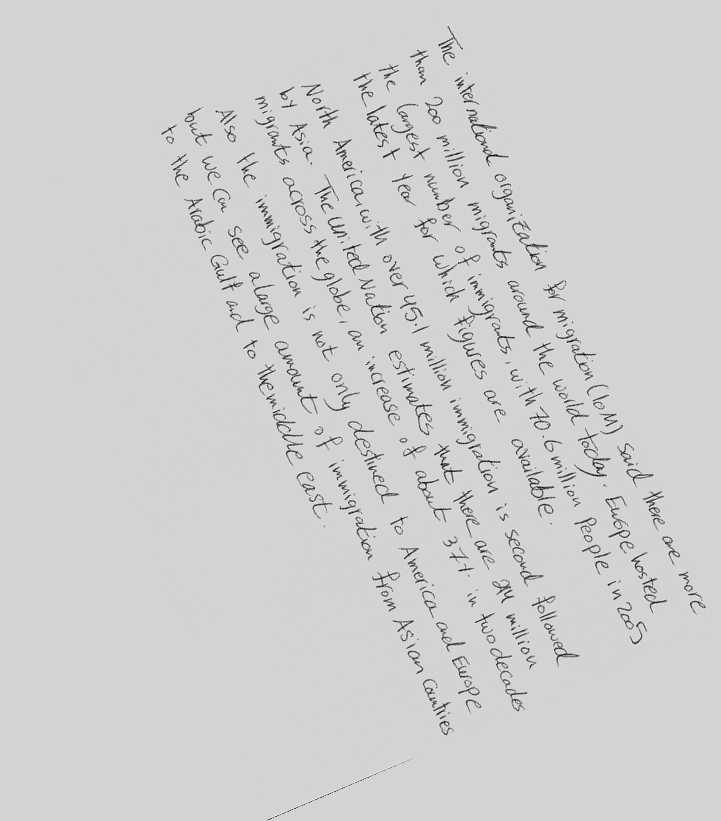 The international organization for migration (IOM) said there are more
than 200 million migrants around the world today. Europe hosted
the largest number of immigrants, with 70.6 million People in 2005
the latest year for which figures are available.
North America, with over 45.1 million immigration is second followed
by Asia. The United Nation estimates that there are 214 million
migrants across the globe, an increase of about 37% in two decades
Also the immigration is not only destined to America and Europe
but we can see a large amount of immigration from Asian Countries
to the Arabic Gulf and to the middle east.